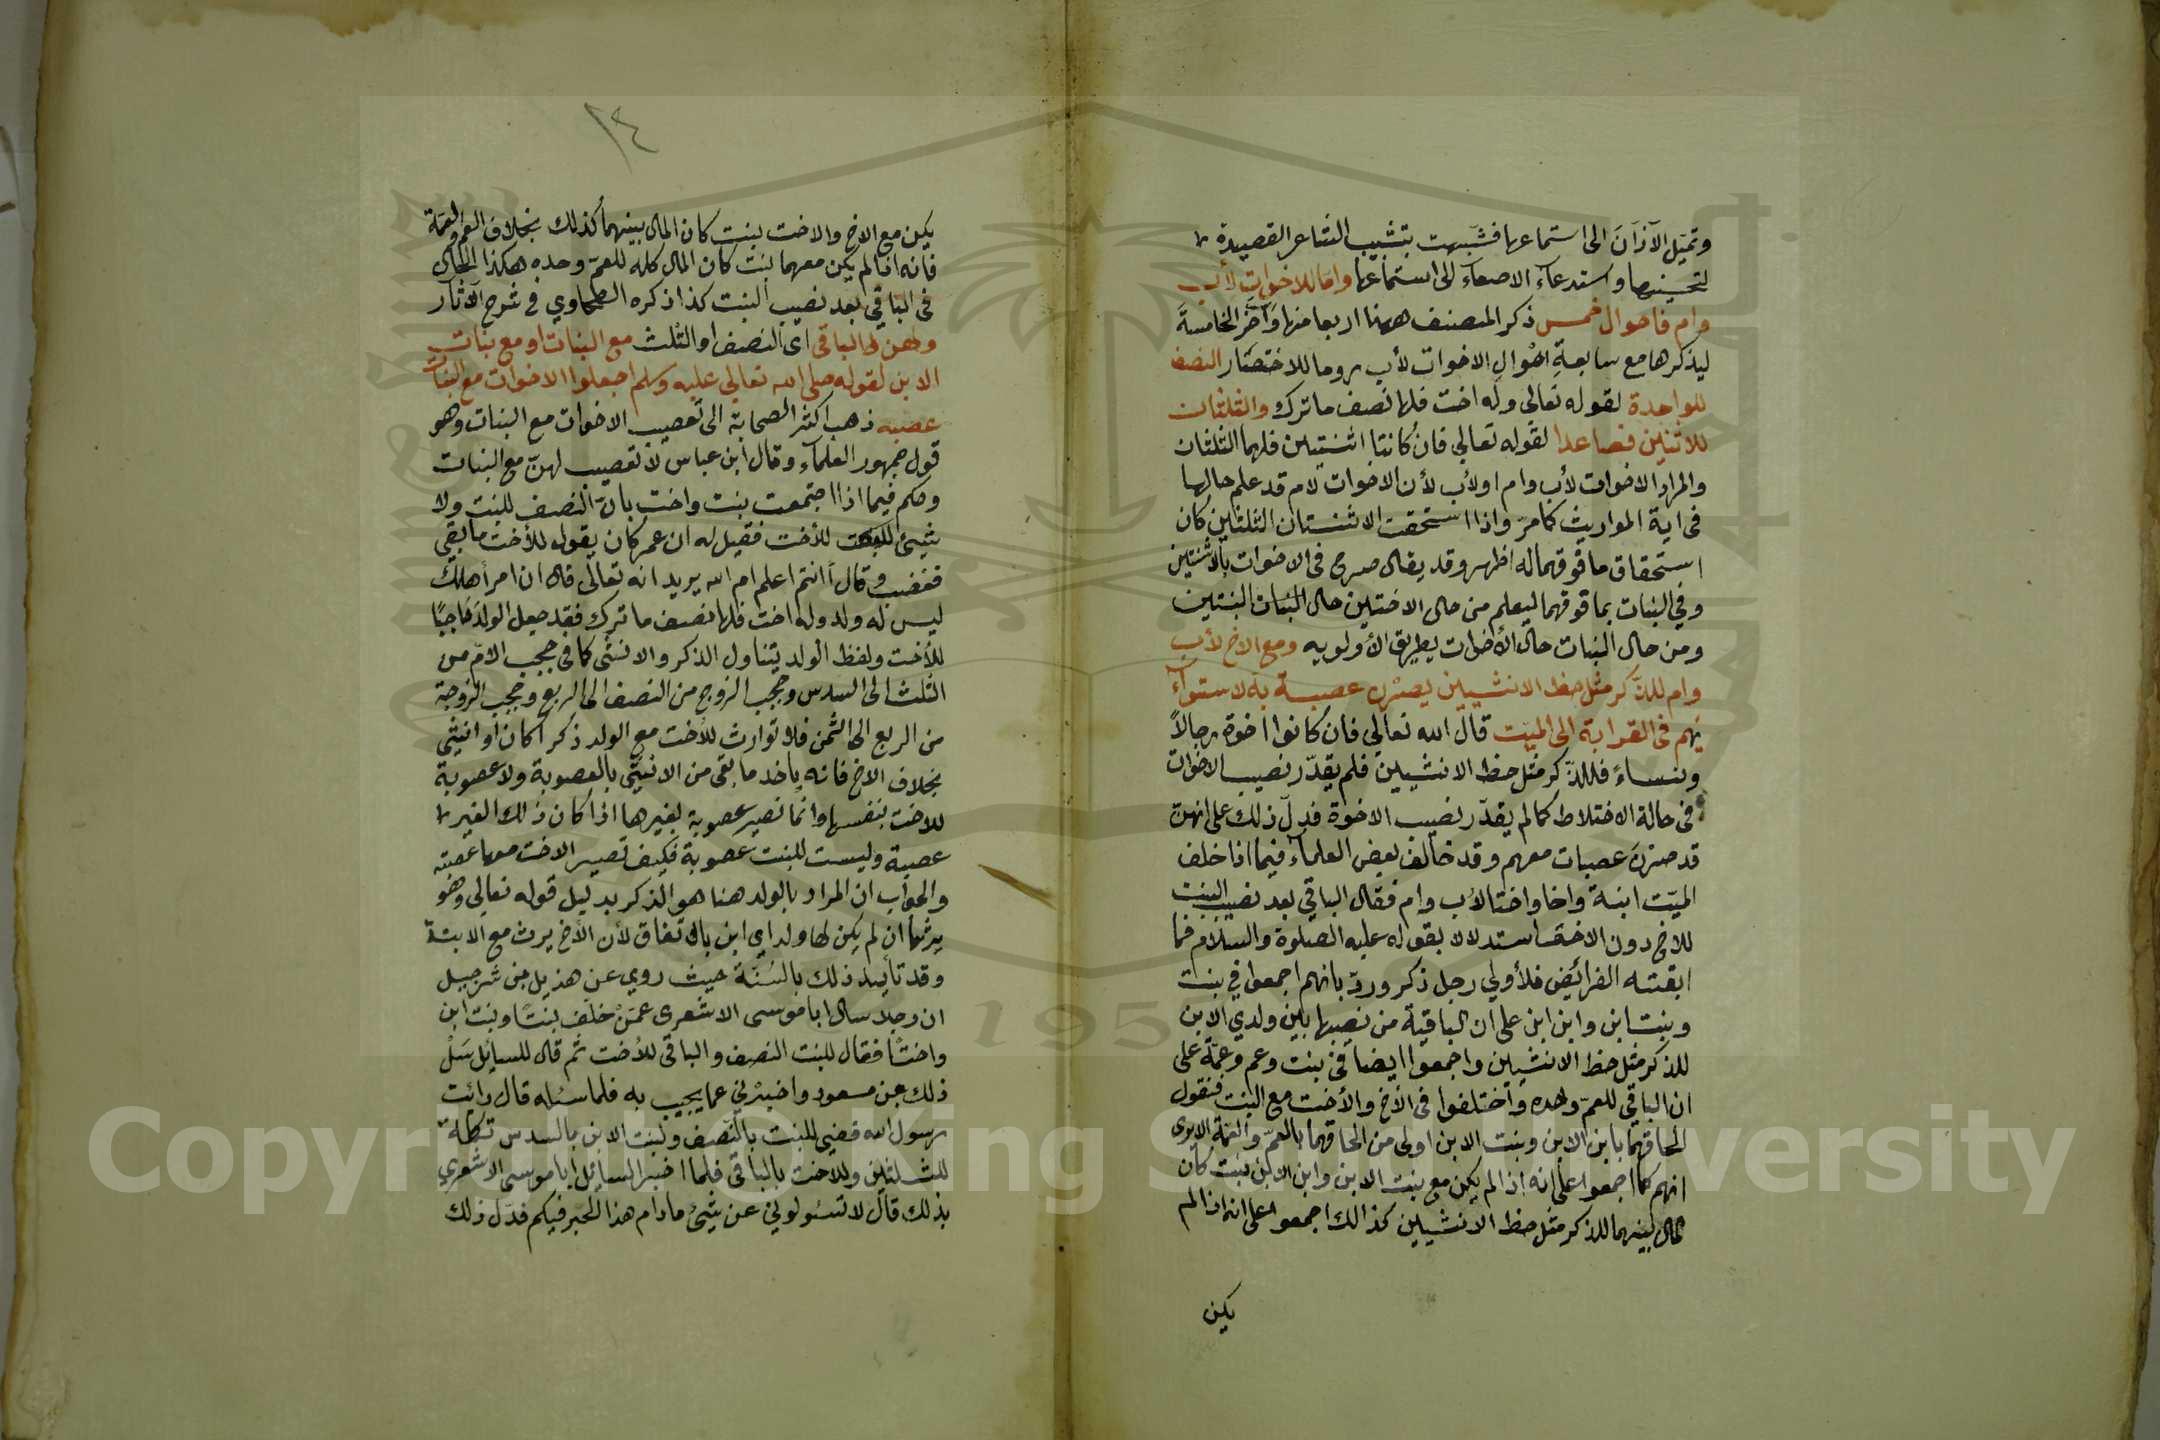 وتميل الآذان الى استماعها فشبهت بتشبيب الشاعر القصيدة
لتحسينها واستدعاء الاصغاء الى استماعها واما للاخوات لأب
وام فاحوال خمس ذكر المصنف ههنا اربعا منها وآخر الخامسة
ليذكرها مع سابعة احوال الاخوات لأب روما للاختصار النصف
للواحدة لقوله تعالى وله اخت فلها نصف ما ترك والثلثان
للاثنتين فصاعدا لقوله تعالى فان كانتا اثنتين فلهما الثلثان
والمراد الاخوات لأب وام او لأب لأن الاخوات لام قد علم حالها
فى اية المواريث كما مر واذا استحقت الاثنتان الثلثين كان
استحقاق ما فوقهما له اظهر وقد يقال صرح فى الاخوات بالاثنتين
وفي البنات بما فوقهما ليعلم من حال الاختين حال البنتين
ومن حال البنات حال الأخوات بطريق الأولويه ومع الاخ لأب
وام للذكر مثل حظ الانثيين يصرن عصبة به لاستوآء
ئهم فى القرابة الى الميت قال الله تعالى فان كانوا اخوة رجالاً
ونساءً فللذكر مثل حظ الانثيين فلم يقدر نصيب الاخوات
فى حالة الاختلاط كما لم يقدر نصيب الاخوة فدل ذلك على انهن
قد صرن عصبات معهم وقد خالف بعض العلمآء فيما اذا خلف
الميت ابنة واخا واختا لأب وام فقال الباقي بعد نصيب البنت
للاخ دون الاخت استدلالا بقوله عليه الصلوة والسلام فما
ابقته الفرائض فلأولي رجل ذكر ورد بانهم اجمعوا في بنت
وبنت ابن وابن ابن على ان الباقية من نصيبها بين ولدي الابن
للذكر مثل حظ الانثيين واجمعوا ايضا فى بنت وعم وعمة على
ان الباقي للعم وحده واختلفوا فى الأخ والأخت مع البنت فنقول
الحاقهما بابن الابن وبنت الابن اولى من الحاقهما بالعم والعمة الايرى
انهم كما اجمعوا على انه اذا لم يكن مع بنت الابن وابن الابن بنت كان
المال بينهما للذكر مثل حظ الانثيين كذالك اجمعوا على انه اذا لم
يكن
١٤
يكن مع الاخ والاخت بنت كان المال بينهما كذلك بخلاف العم والعمة
فانه اذا لم يكن معهما بنت كان المال كله للعم وحده هكذا الحال
فى الباقي بعد نصيب البنت كذا ذكره الطحاوي فى شرح الآثار
ولهن الباقي اى النصف او الثلث مع البنات او مع بنات
الابن لقوله صلى الله تعالى عليه وسلم اجعلوا الاخوات مع البنات
عصبه ذهب اكثر الصحابة الى تعصيب الاخوات مع البنات وهو
قول جمهور العلمآء وقال ابن عباس لا تعصيب لهن مع البنات
وحكم فيما اذا اجتمعت بنت واخت بان النصف للبنت ولا
شيئ للأخت فقيل له ان عمر كان يقول للأخت ما بقي
فغضب وقال أانتم اعلم ام الله يريد انه تعالى قال ان امرأ هلك
ليس له ولد وله اخت فلها نصف ما ترك فقد جعل الولد حاجبًا
للأخت ولفظ الولد يتناول الذكر والانثى كما فى حجب الام من
الثلث الى السدس وحجب الزوج من النصف الى الربع وحجب الزوجة
من الربع الى الثمن فلا توارث للأخت مع الولد ذكرا كان او انثى
بخلاف الاخ فانه يأخد ما بقى من الانثى بالعصوبة ولا عصوبة
للاخت بنفسها وانما تصير عصوبة بغيرها اذا كان ذلك الغير
عصبة وليست للبنت عصوبة فكيف تصير الاخت معها عصبه
والجواب ان المراد بالولد هنا هو الذكر بدليل قوله تعالى وهو
يرثها ان لم يكن لها ولد اى ابن بالاتفاق لأن الأخ يرث مع الابنة
وقد تأيد ذلك بالسُنَّة حيث روي عن هذيل بن شرجبيل
ان رجلا سال ابا موسى الاشعرى عمن خلف بنتًا وبنت ابن
واختًا فقال للبنت النصف والباقى للأخت ثم قال للسايل سَلْ
ذلك عن مسعود واخبرني عما يجيب به فلما سئله قال رائت
رسول الله قضي للبنت بالنصف ولبنت الابن بالسدس تكملة
للثلثين وللاخت بالباقى فلما اخبر السايل ابا موسى الاشعري
بذلك قال لا تسئولوني عن شيئ مادام هذا الحبر فيكم فدل ذلك
Copyright © King Saud University
1957